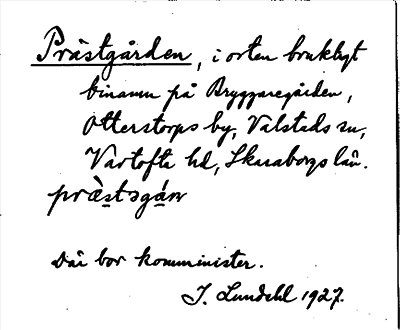 Prästgården, i orten brukligt
binamn på Bryggaregården,
Otterstorps by, Valstads sn,
Vartofta hd, Skaraborgs län.
præ̀stsgán
Där bor komminister.
J. Lundahl 1927.